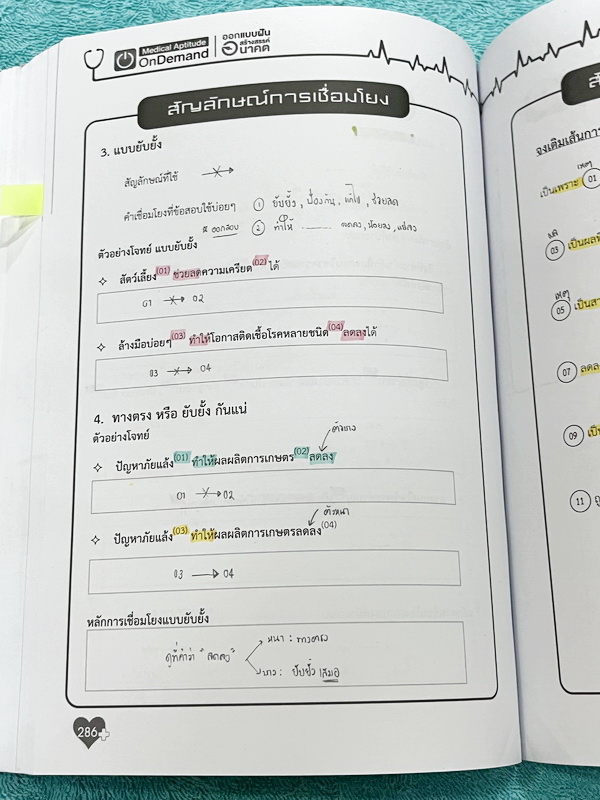 Medical Aptitude
OnDemand
ออกแบบฝัน
สร้างสรรค์
อนาคต
สัญลักษณ์การเชื่อมโยง
3. แบบยับยั้ง
สัญลักษณ์ที่ใช้
คำเชื่อมโยงที่ข้อสอบใช้บ่อยๆ ① ยับยั้ง, ป้องกัน, แก้ไข, ช่วยลด
② ทำให้ ........ ลดลง, น้อยลง,
ตัวอย่างโจทย์ แบบยับยั้ง
สัตว์เลี้ยง(01) ช่วยลดความเครียด(02)ได้
01 02
ล้างมือบ่อยๆ(03) ทำให้โอกาสติดเชื้อโรคหลายชนิด(04)ลดลงได้
03 04
4. ทางตรง หรือ ยับยั้ง กันแน่
ตัวอย่างโจทย์
ตัวบาง
ปัญหาภัยแล้ง(01) ทำให้ผลผลิตการเกษตร(02)ลดลง
01 02
ตัวหนา
ปัญหาภัยแล้ง(03) ทำให้ผลผลิตการเกษตรลดลง(04)
03 → 04
หลักการเชื่อมโยงแบบยับยั้ง
หนา : ทางตรง
ดูที่คำว่า "ลดลง"
บาง : ยับยั้ง เสมอ
286
จงเติมเส้นการ
เหตุ
เป็นเพราะ 01
ผล
03 เป็นผลที
เหตุ
05 เป็นสา
07 ลดล
09 เป็น
11